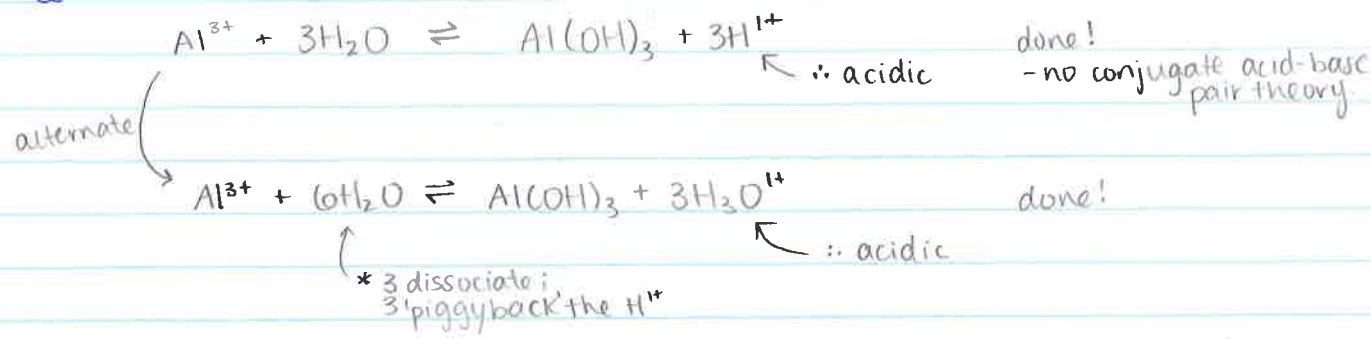 Al³⁺ + 3H₂O ⇌ Al(OH)₃ + 3H¹⁺ done!
∴ acidic - no conjugate acid-base
pair theory
alternate
Al³⁺ + 6H₂O ⇌ Al(OH)₃ + 3H₃O¹⁺ done!
∴ acidic
* 3 dissociate;
3 'piggyback' the H¹⁺